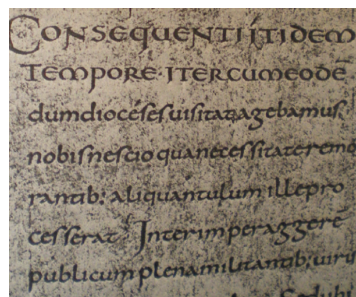 CONSEQUENTI ITIDEM
TEMPORE· ITERCUMEODĒ
dumdiocésesuisitatagebamus.
nobisnescioquanecessitateremo
rantib: aliquantulum illepro
cesserat Interimperaggerē
publicumplenamilitantib: uiris